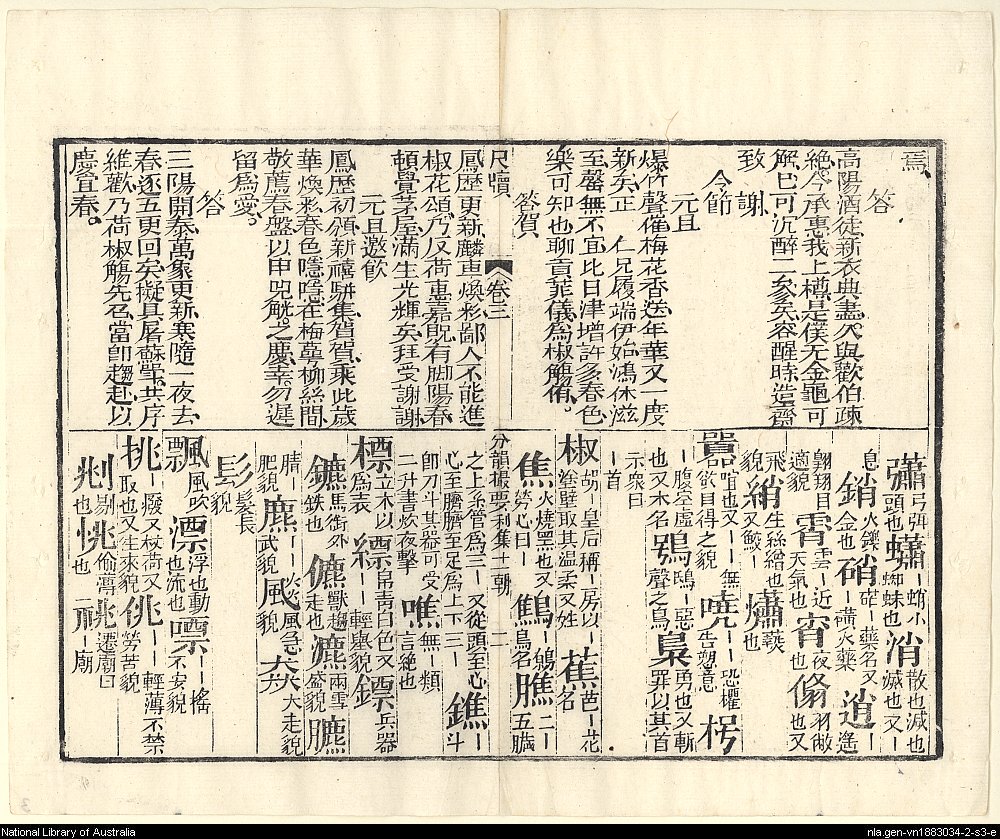 焉、
答
高陽酒徒新衣典盡、久與歡伯疎
絕、今承惠我上樽、是僕无金龜可
解、已可沉醉二參矣、容醒時造齋
致謝
令節
元旦
爆竹聲催、梅花香送、年華又一度
新矣、正 仁兄履端伊始、鴻休滋
至、罄無不宜、比日津增許多春色、
樂可知也、聊貢菲儀、為椒觴侑。
答賀
尺牘 卷三
鳳歷更新、麟車煥彩、鄙人不能進
椒花頌、乃反荷惠嘉貺、有脚陽春、
頓覺茅屋滿生光輝矣、拜受謝謝、
元旦邀飲
鳳歷初頒、新禧駢集、賀賀、乘此歲
華煥彩、春色隱隱在梅萼柳絲間、
敬薦春盤、以申兕觥之慶、幸勿遲
留為愛。
答
三陽開泰、萬象更新、寒隨一夜去、
春逐五更回矣、擬具屠蘇、共序
維歡、乃荷椒觴先召、當即趨赴、以
慶宜春。
弓弭頭也蠨–蛸小蜘蛛也消散也減也滅也又–
息銷火鑠金也硝硭–藥名又–磺火藥逍–遙
翱翔自適貌霄雲–近天氣也宵夜也翛羽敝也又
飛貌綃生絲繒也又鮫–熽爇也
囂喧也又––無欲自得之貌嘵––恐懼告愬意枵
–腹空虛也又木名鴞鴟–惡聲之鳥梟勇也又斬罪以其首
示衆曰–首
椒胡–皇后稱–房以塗壁取其溫柔又姓蕉芭–花名
焦火燒黑也又勞心曰–鷦–鷯鳥名膲二–五臟
分韻撮要利集 十一朝 二
之上系管為三–又從頭至心–心至臍臍至足為上下三–鐎–斗
即刀斗其器可受二升晝炊夜擊噍無–類言絕也
標立木以為表縹––帛青白色又輕舉貌鏢兵器
鑣馬銜外鐵也儦––獸趨走也瀌––雨雪盛貌臕
脂–肥貌麃––武貌飊–風急貌猋犬走貌
髟髮長貌
飄–風吹漂浮也動也流也嘌––搖不安貌
挑–撥又杖荷又取也又往來貌佻––輕薄不禁勞苦貌
剔也恌偷薄也祧遷廟曰–廟
National Library of Australia
nla.gen-vn1883034-2-s3-e